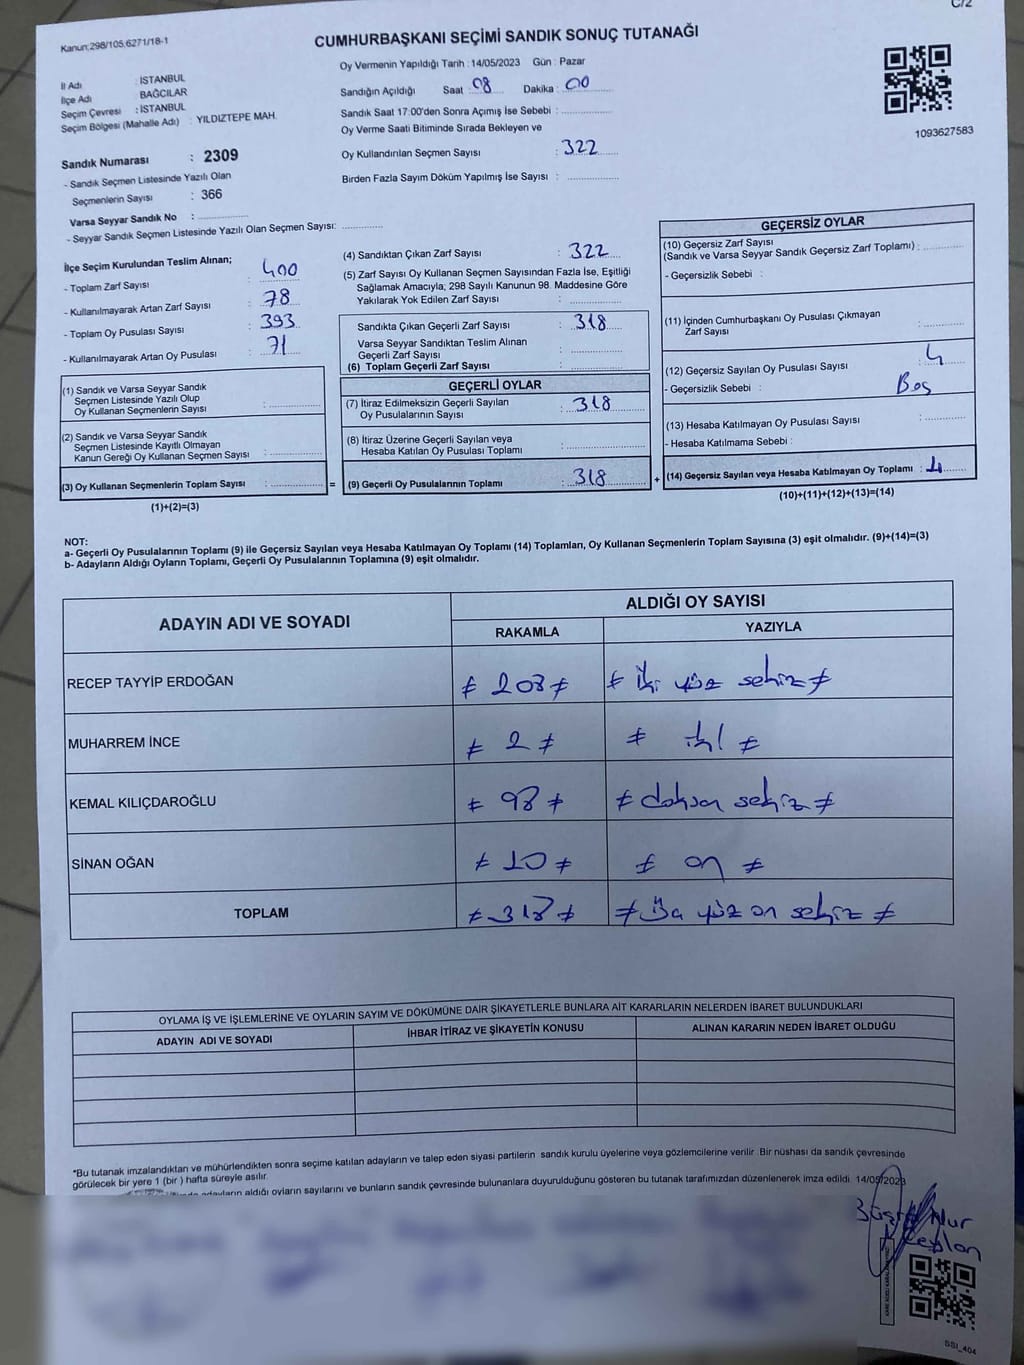 C/2
Kanun:298/105;6271/18-1
CUMHURBAŞKANI SEÇİMİ SANDIK SONUÇ TUTANAĞI
İl Adı : İSTANBUL
İlçe Adı : BAĞCILAR
Seçim Çevresi : İSTANBUL
Seçim Bölgesi (Mahalle Adı) : YILDIZTEPE MAH.
Sandık Numarası : 2309
- Sandık Seçmen Listesinde Yazılı Olan
Seçmenlerin Sayısı : 366
Varsa Seyyar Sandık No :
- Seyyar Sandık Seçmen Listesinde Yazılı Olan Seçmen Sayısı:
Oy Vermenin Yapıldığı Tarih : 14/05/2023 Gün : Pazar
Sandığın Açıldığı Saat : 08 Dakika : 00
Sandık Saat 17:00'den Sonra Açımış İse Sebebi :
Oy Verme Saati Bitiminde Sırada Bekleyen ve
Oy Kullandırılan Seçmen Sayısı : 322
Birden Fazla Sayım Döküm Yapılmış İse Sayısı :
1093627583
İlçe Seçim Kurulundan Teslim Alınan;
- Toplam Zarf Sayısı : 400
- Kullanılmayarak Artan Zarf Sayısı : 78
- Toplam Oy Pusulası Sayısı : 393
- Kullanılmayarak Artan Oy Pusulası : 71
(1) Sandık ve Varsa Seyyar Sandık
Seçmen Listesinde Yazılı Olup
Oy Kullanan Seçmenlerin Sayısı :
(2) Sandık ve Varsa Seyyar Sandık
Seçmen Listesinde Kayıtlı Olmayan
Kanun Gereği Oy Kullanan Seçmen Sayısı :
(3) Oy Kullanan Seçmenlerin Toplam Sayısı : =
(1)+(2)=(3)
(4) Sandıktan Çıkan Zarf Sayısı : 322
(5) Zarf Sayısı Oy Kullanan Seçmen Sayısından Fazla İse, Eşitliği
Sağlamak Amacıyla; 298 Sayılı Kanunun 98. Maddesine Göre
Yakılarak Yok Edilen Zarf Sayısı :
Sandıkta Çıkan Geçerli Zarf Sayısı : 318
Varsa Seyyar Sandıktan Teslim Alınan
Geçerli Zarf Sayısı :
(6) Toplam Geçerli Zarf Sayısı :
GEÇERLİ OYLAR
(7) İtiraz Edilmeksizin Geçerli Sayılan
Oy Pusulalarının Sayısı : 318
(8) İtiraz Üzerine Geçerli Sayılan veya
Hesaba Katılan Oy Pusulası Toplamı :
(9) Geçerli Oy Pusulalarının Toplamı : 318 +
GEÇERSİZ OYLAR
(10) Geçersiz Zarf Sayısı
(Sandık ve Varsa Seyyar Sandık Geçersiz Zarf Toplamı) :
- Geçersizlik Sebebi :
(11) İçinden Cumhurbaşkanı Oy Pusulası Çıkmayan
Zarf Sayısı :
(12) Geçersiz Sayılan Oy Pusulası Sayısı : 4
- Geçersizlik Sebebi : Boş
(13) Hesaba Katılmayan Oy Pusulası Sayısı :
- Hesaba Katılmama Sebebi :
(14) Geçersiz Sayılan veya Hesaba Katılmayan Oy Toplamı : 4
(10)+(11)+(12)+(13)=(14)
NOT:
a- Geçerli Oy Pusulalarının Toplamı (9) ile Geçersiz Sayılan veya Hesaba Katılmayan Oy Toplamı (14) Toplamları, Oy Kullanan Seçmenlerin Toplam Sayısına (3) eşit olmalıdır. (9)+(14)=(3)
b- Adayların Aldığı Oyların Toplamı, Geçerli Oy Pusulalarının Toplamına (9) eşit olmalıdır.
ADAYIN ADI VE SOYADI
ALDIĞI OY SAYISI
RAKAMLA YAZIYLA
RECEP TAYYİP ERDOĞAN ≠ 208 ≠ ≠ iki yüz sekiz ≠
MUHARREM İNCE ≠ 2 ≠ ≠ iki ≠
KEMAL KILIÇDAROĞLU ≠ 98 ≠ ≠ doksan sekiz ≠
SİNAN OĞAN ≠ 10 ≠ ≠ on ≠
TOPLAM ≠ 318 ≠ ≠ Üç yüz on sekiz ≠
OYLAMA İŞ VE İŞLEMLERİNE VE OYLARIN SAYIM VE DÖKÜMÜNE DAİR ŞİKAYETLERLE BUNLARA AİT KARARLARIN NELERDEN İBARET BULUNDUKLARI
ADAYIN ADI VE SOYADI İHBAR İTİRAZ VE ŞİKAYETİN KONUSU ALINAN KARARIN NEDEN İBARET OLDUĞU
*Bu tutanak imzalandıktan ve mühürlendikten sonra seçime katılan adayların ve talep eden siyasi partilerin sandık kurulu üyelerine veya gözlemcilerine verilir. Bir nüshası da sandık çevresinde
görülecek bir yere 1 (bir) hafta süreyle asılır.
adayların aldığı oyların sayılarını ve bunların sandık çevresinde bulunanlara duyurulduğunu gösteren bu tutanak tarafımızdan düzenlenerek imza edildi. 14/05/2023
Büşra Nur
Ceylan
SSI_404